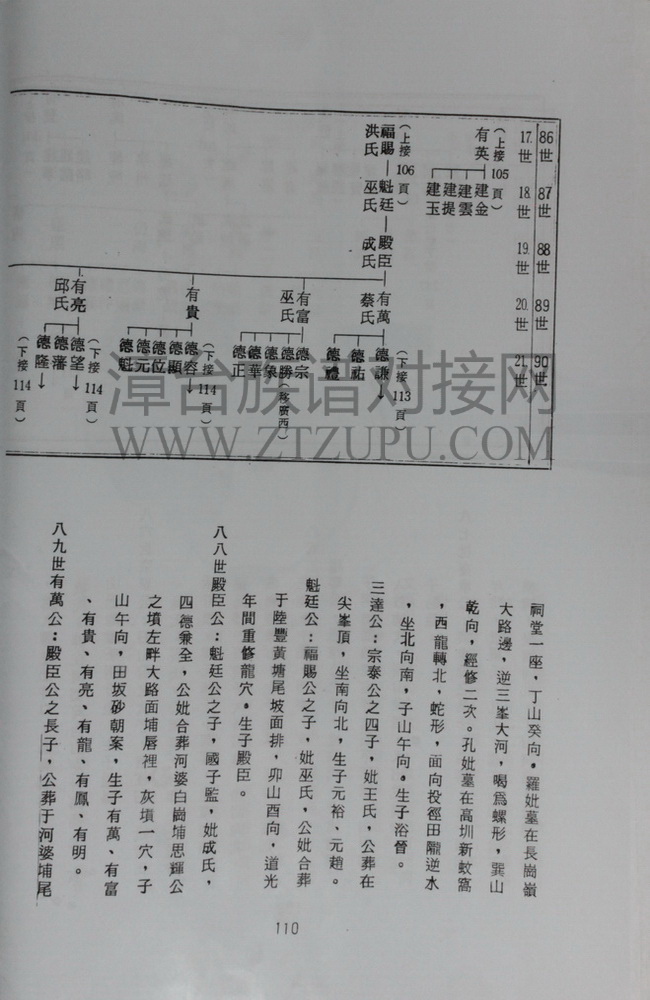 86世 87世 88世 89世 90世
17.世 18.世 19.世 20.世 21.世
（上接105頁）
有英
建金
建雲
建提
建玉
（上接106頁）
福賜 魁廷 殿臣
洪氏 巫氏 成氏
有萬
蔡氏
（下接113頁）
德謙
德祐
德禮
有富
巫氏
德宗
德勝（移廣西）
德榮
德華
德正
有貴
（下接114頁）
德容
德顯
德位
德元
德魁
有亮
邱氏
（下接114頁）
德望
德藩
德隆
（下接114頁）
漳台族谱对接网
WWW.ZTZUPU.COM
祠堂一座，丁山癸向。羅妣墓在長崗嶺
大路邊，逆三峯大河，喝爲螺形，巽山
乾向，經修二次。孔妣墓在高圳新蚊窩
，西龍轉北，蛇形，面向投徑田隴逆水
，坐北向南，子山午向。生子浴晉。
三達公：宗泰公之四子，妣王氏，公葬在
尖峯頂，坐南向北，生子元裕、元趙。
魁廷公：福賜公之子，妣巫氏，公妣合葬
于陸豐黃塘尾坡面排，卯山酉向，道光
年間重修龍穴。生子殿臣。
八八世殿臣公：魁廷公之子，國子監，妣成氏，
四德兼全，公妣合葬河婆白崗埔思輝公
之墳左畔大路面埔唇裡，灰墳一穴，子
山午向，田坂砂朝案，生子有萬、有富
、有貴、有亮、有龍、有鳳、有明。
八九世有萬公：殿臣公之長子，公葬于河婆埔尾
110